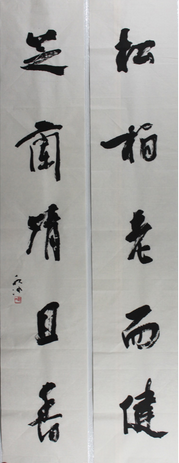 松柏老而健
芝兰清且香